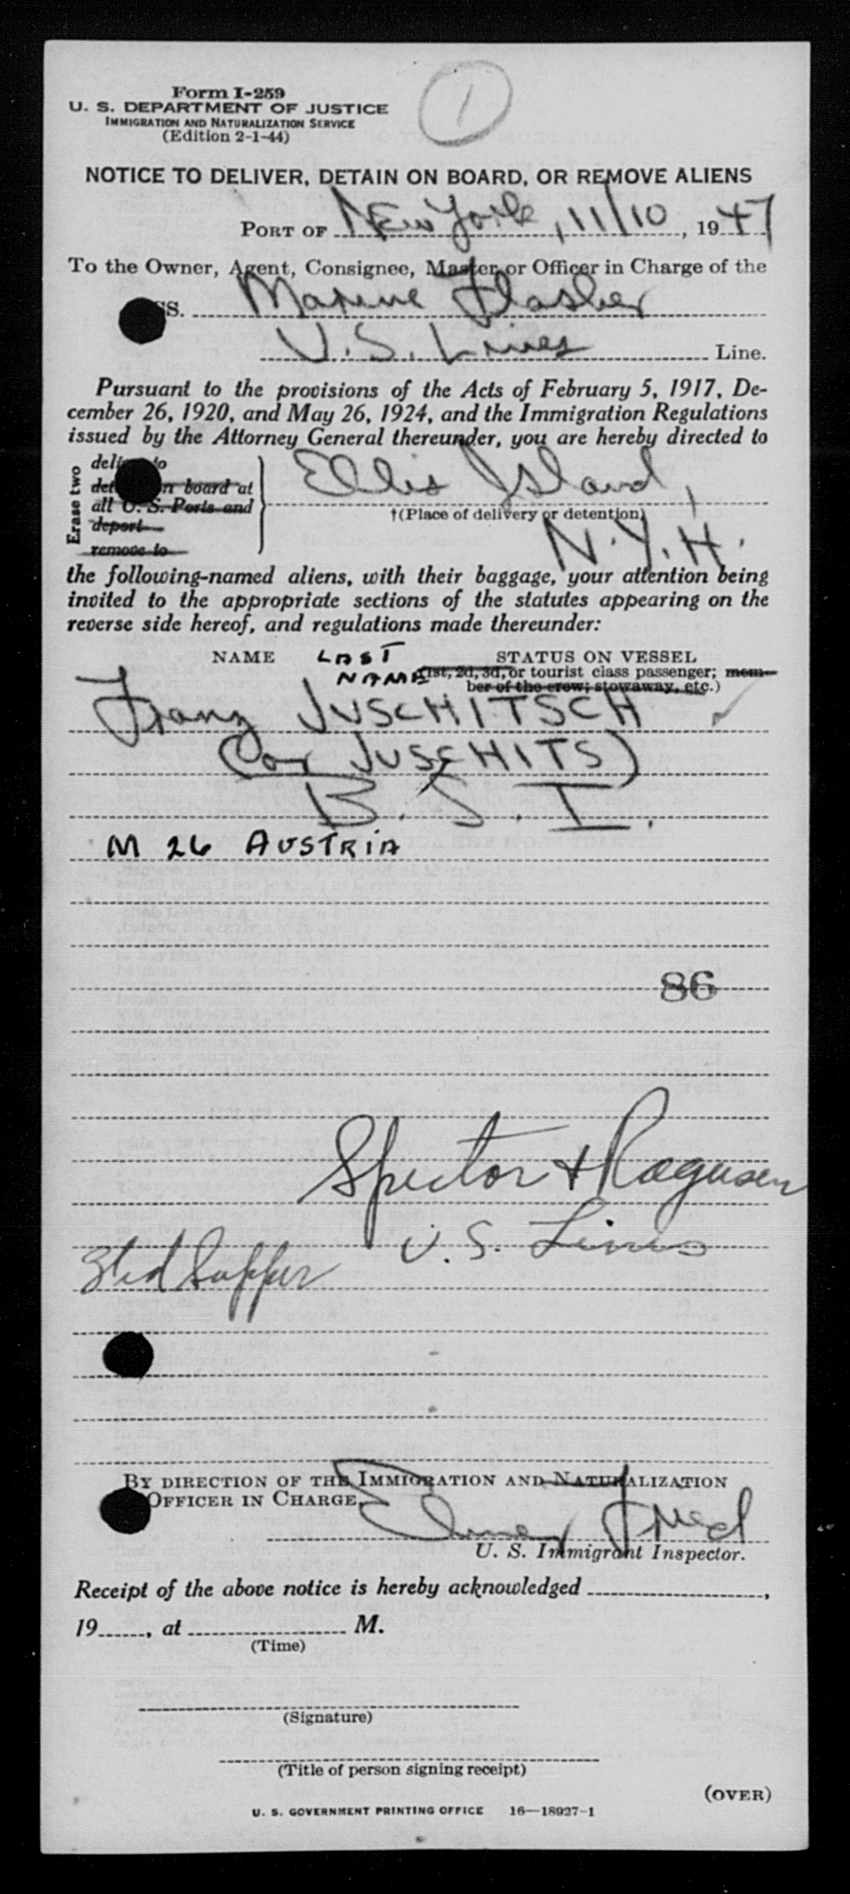 1
Form I-259
U. S. DEPARTMENT OF JUSTICE
IMMIGRATION AND NATURALIZATION SERVICE
(Edition 2-1-44)
NOTICE TO DELIVER, DETAIN ON BOARD, OR REMOVE ALIENS
PORT OF New York, 11/10, 1947
To the Owner, Agent, Consignee, Master or Officer in Charge of the
SS. Marine Flasher
U.S. Lines Line.
Pursuant to the provisions of the Acts of February 5, 1917, De-
cember 26, 1920, and May 26, 1924, and the Immigration Regulations
issued by the Attorney General thereunder, you are hereby directed to
Erase two
deliver to
detain on board at
all U. S. Ports and
deport
remove to
Ellis Island,
†(Place of delivery or detention)
N.Y.H.
the following-named aliens, with their baggage, your attention being
invited to the appropriate sections of the statutes appearing on the
reverse side hereof, and regulations made thereunder:
NAME LAST NAME STATUS ON VESSEL
(1st, 2d, 3d, or tourist class passenger; mem-
ber of the crew; stowaway, etc.)
Franz JUSCHITSCH
(or JUSCHITS)
B.S.I.
M 26 AUSTRIA
86
Spector + Ragusen
U.S. Lines
Supper
BY DIRECTION OF THE IMMIGRATION AND NATURALIZATION
OFFICER IN CHARGE,
U. S. Immigrant Inspector.
Receipt of the above notice is hereby acknowledged ,
19 , at M.
(Time)
(Signature)
(Title of person signing receipt)
(OVER)
U. S. GOVERNMENT PRINTING OFFICE 16—18927-1